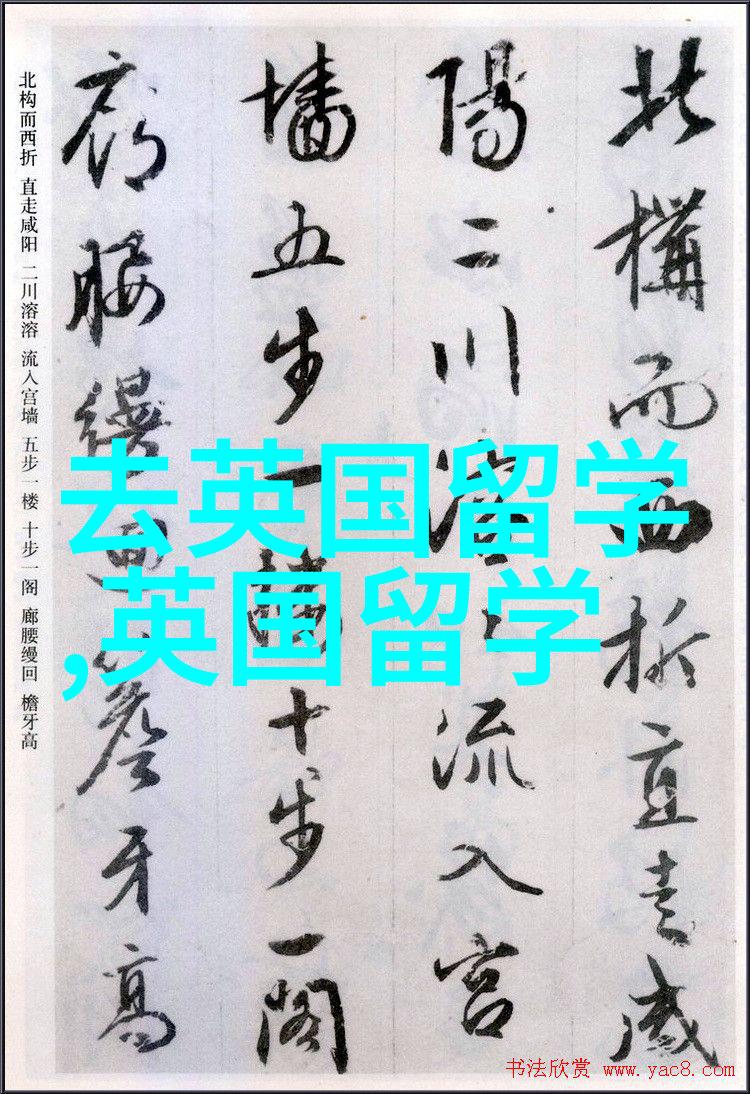 北構而西折直走咸
陽二川溶〻流入宫
墙五步一楼十步一閣
廊腰缦回簷牙高
北构而西折 直走咸阳 二川溶溶 流入宫墙 五步一楼 十步一阁 廊腰缦回 檐牙高
去英国留学
,英国留学
书法欣赏 www.yac8.com